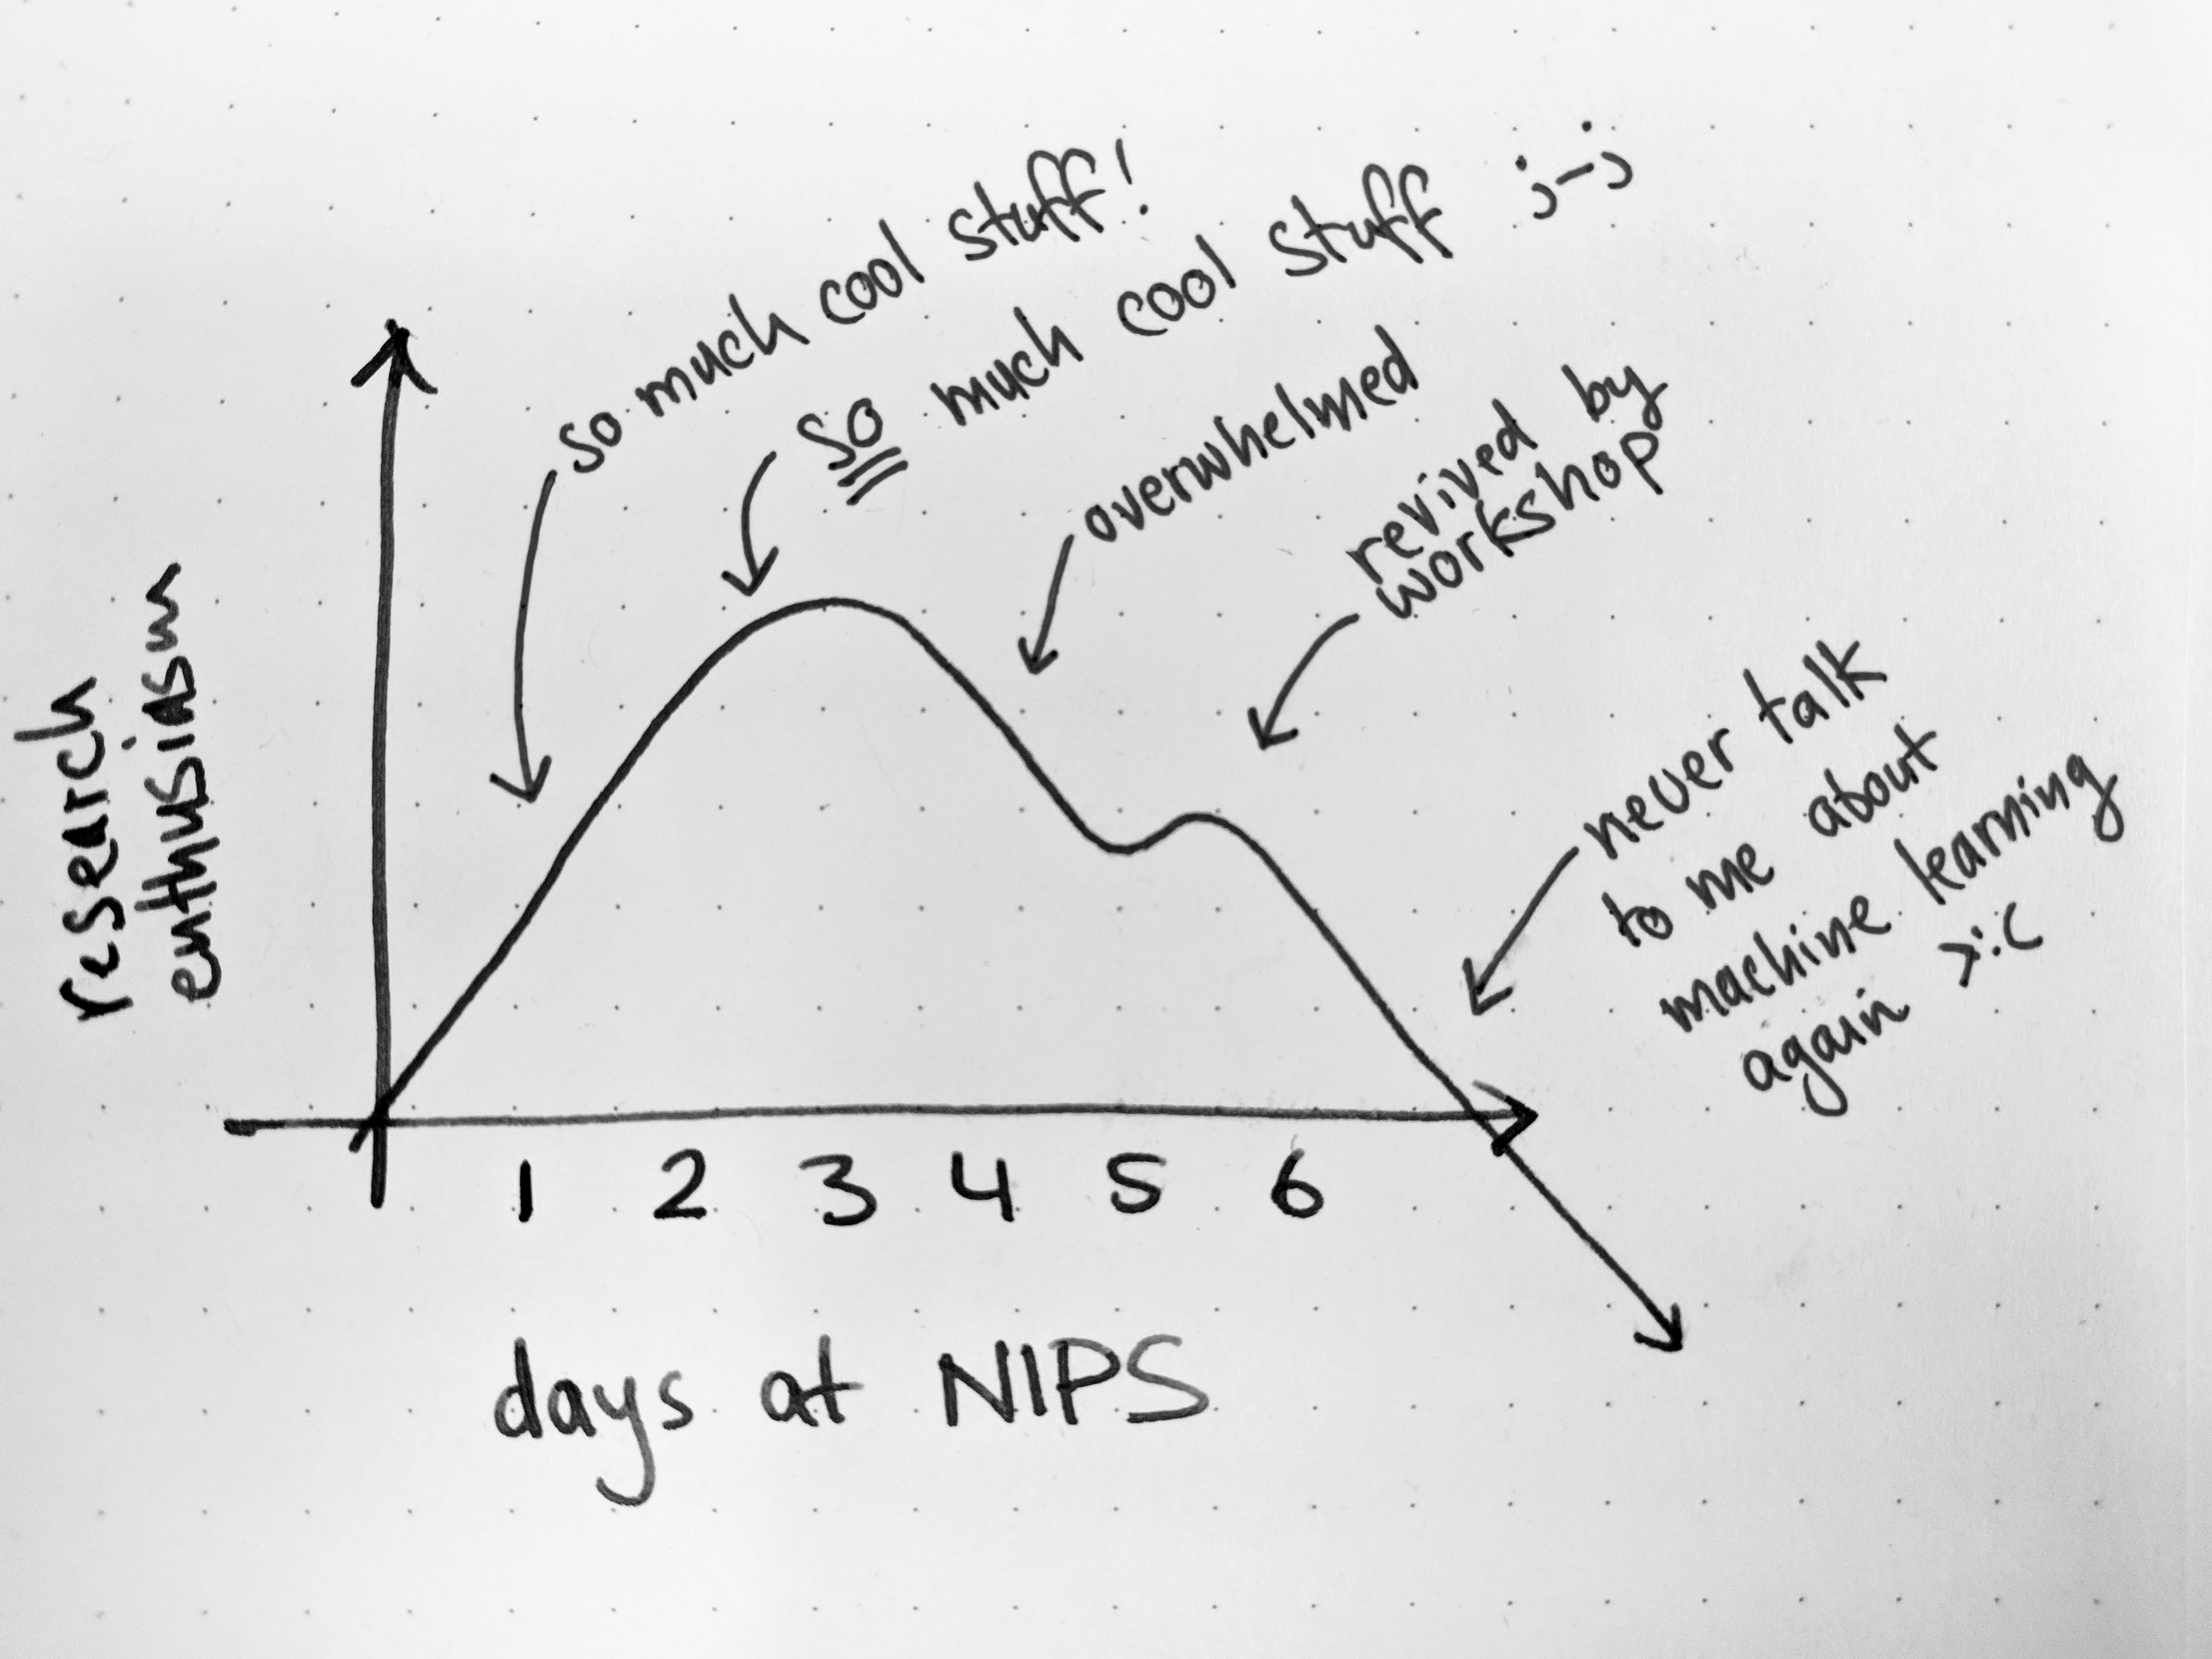 so much cool stuff!
so much cool stuff ;-;
overwhelmed
revived by
workshop
never talk
to me about
machine learning
again >:c
research
enthusiasm
1 2 3 4 5 6
days at NIPS